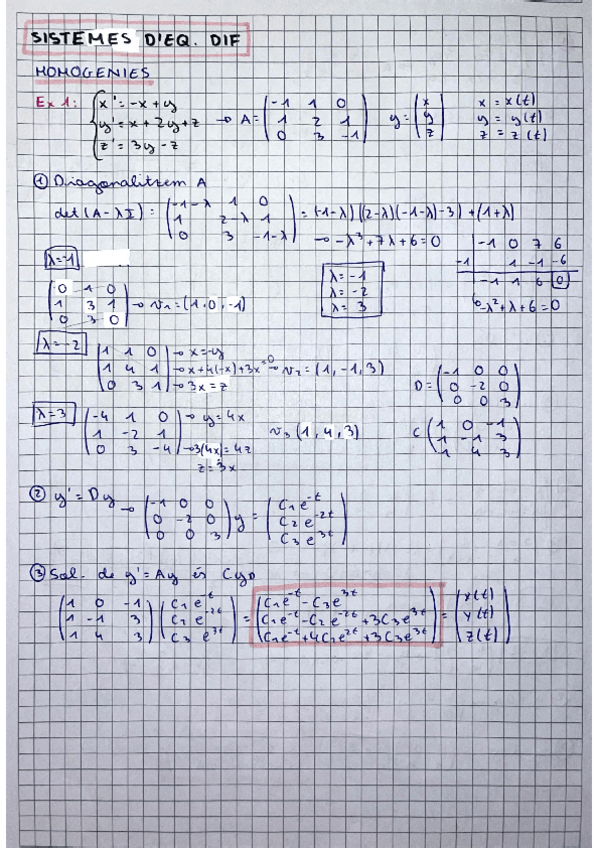 SISTEMES D'EQ. DIF
HOMOGENIES
Ex 1: { x' = -x + y
y' = x + 2y + z → A = ( -1 1 0 / 1 2 1 / 0 3 -1 ) y = ( x / y / z ) x = x(t) y = y(t) z = z(t)
z' = 3y - z
① Diagonalitzem A
det(A-λI): ( -1-λ 1 0 / 1 2-λ 1 / 0 3 -1-λ ) = (-1-λ)((2-λ)(-1-λ)-3) + (1+λ)
→ -λ³+7λ+6=0
-1 0 7 6
-1 1 -1 -6
-1 1 6 0
-λ²+λ+6=0
λ=-1
λ=-2
λ=3
λ=-1
( 0 1 0 / 1 3 1 / 0 3 0 ) → v₁=(1,0,-1)
λ=-2 ( 1 1 0 / 1 4 1 / 0 3 1 ) → x=-y → x+4(-x)+3x=0 → v₂=(1,-1,3)
→ 3x=z
D=( -1 0 0 / 0 -2 0 / 0 0 3 )
λ=3 ( -4 1 0 / 1 -2 1 / 0 3 -4 ) → y=4x
→ 3(4x)=4z
z=3x
v₃(1,4,3)
C ( 1 0 -1 / 1 -1 3 / 1 4 3 )
② y'=Dy → ( -1 0 0 / 0 -2 0 / 0 0 3 ) y = ( C₁e^-t / C₂e^-2t / C₃e^3t )
③ Sol. de y'=Ay és Cy_D
( 1 0 -1 / 1 -1 3 / 1 4 3 ) ( C₁e^-t / C₂e^-2t / C₃e^3t ) = ( C₁e^-t - C₃e^3t / C₁e^-t - C₂e^-2t + 3C₃e^3t / C₁e^-t + 4C₂e^2t + 3C₃e^3t ) = ( x(t) / y(t) / z(t) )